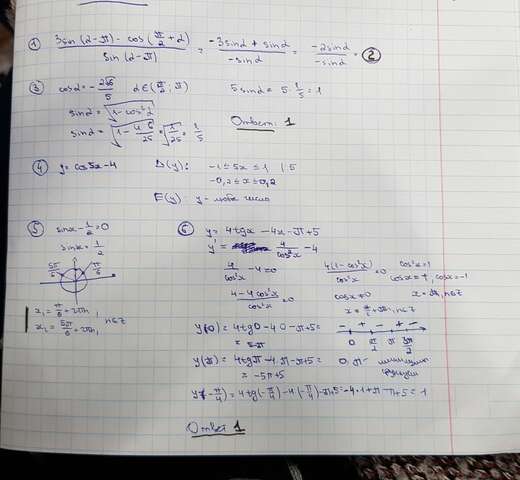 ① (3sin(α-π) - cos(π/2+α)) / sin(α-π) = (-3sinα + sinα) / -sinα = -2sinα / -sinα = ②
③ cosα = - 2√6/5 α∈(π/2; π) 5sinα = 5·1/5 = 1
sinα = √(1-cos²α)
Ответ: 1
sinα = √(1 - 4·6/25) = √(1/25) = 1/5
④ y = cos5x-4 D(y): -1≤5x≤1 |:5
-0,2≤x≤0,2
E(y): y- любое число
⑤ sinx - 1/2 = 0
sinx = 1/2
5π/6 π/6
x₁ = π/6 + 2πn,
x₂ = 5π/6 + 2πn, n∈Z
⑥ y = 4tgx - 4x - π + 5
y' = 4/cos²x - 4
4/cos²x - 4 = 0 4(1-cos²x)/cos²x = 0 cos²x=1
cosx=1, cosx=-1
(4-4cos²x)/cos²x = 0 cosx≠0 x = πn, n∈Z
x = π/2 + πn, n∈Z
y(0) = 4tg0 - 4·0 - π + 5 =
= 5-π
- + - + -
0 π/2 π 3π/2
y(π) = 4tgπ - 4·π - π + 5 =
= -5π + 5
0, π -
функции
y(-π/4) = 4tg(-π/4) - 4(-π/4) - π + 5 = -4·1 + π - π + 5 = 1
Ответ 1